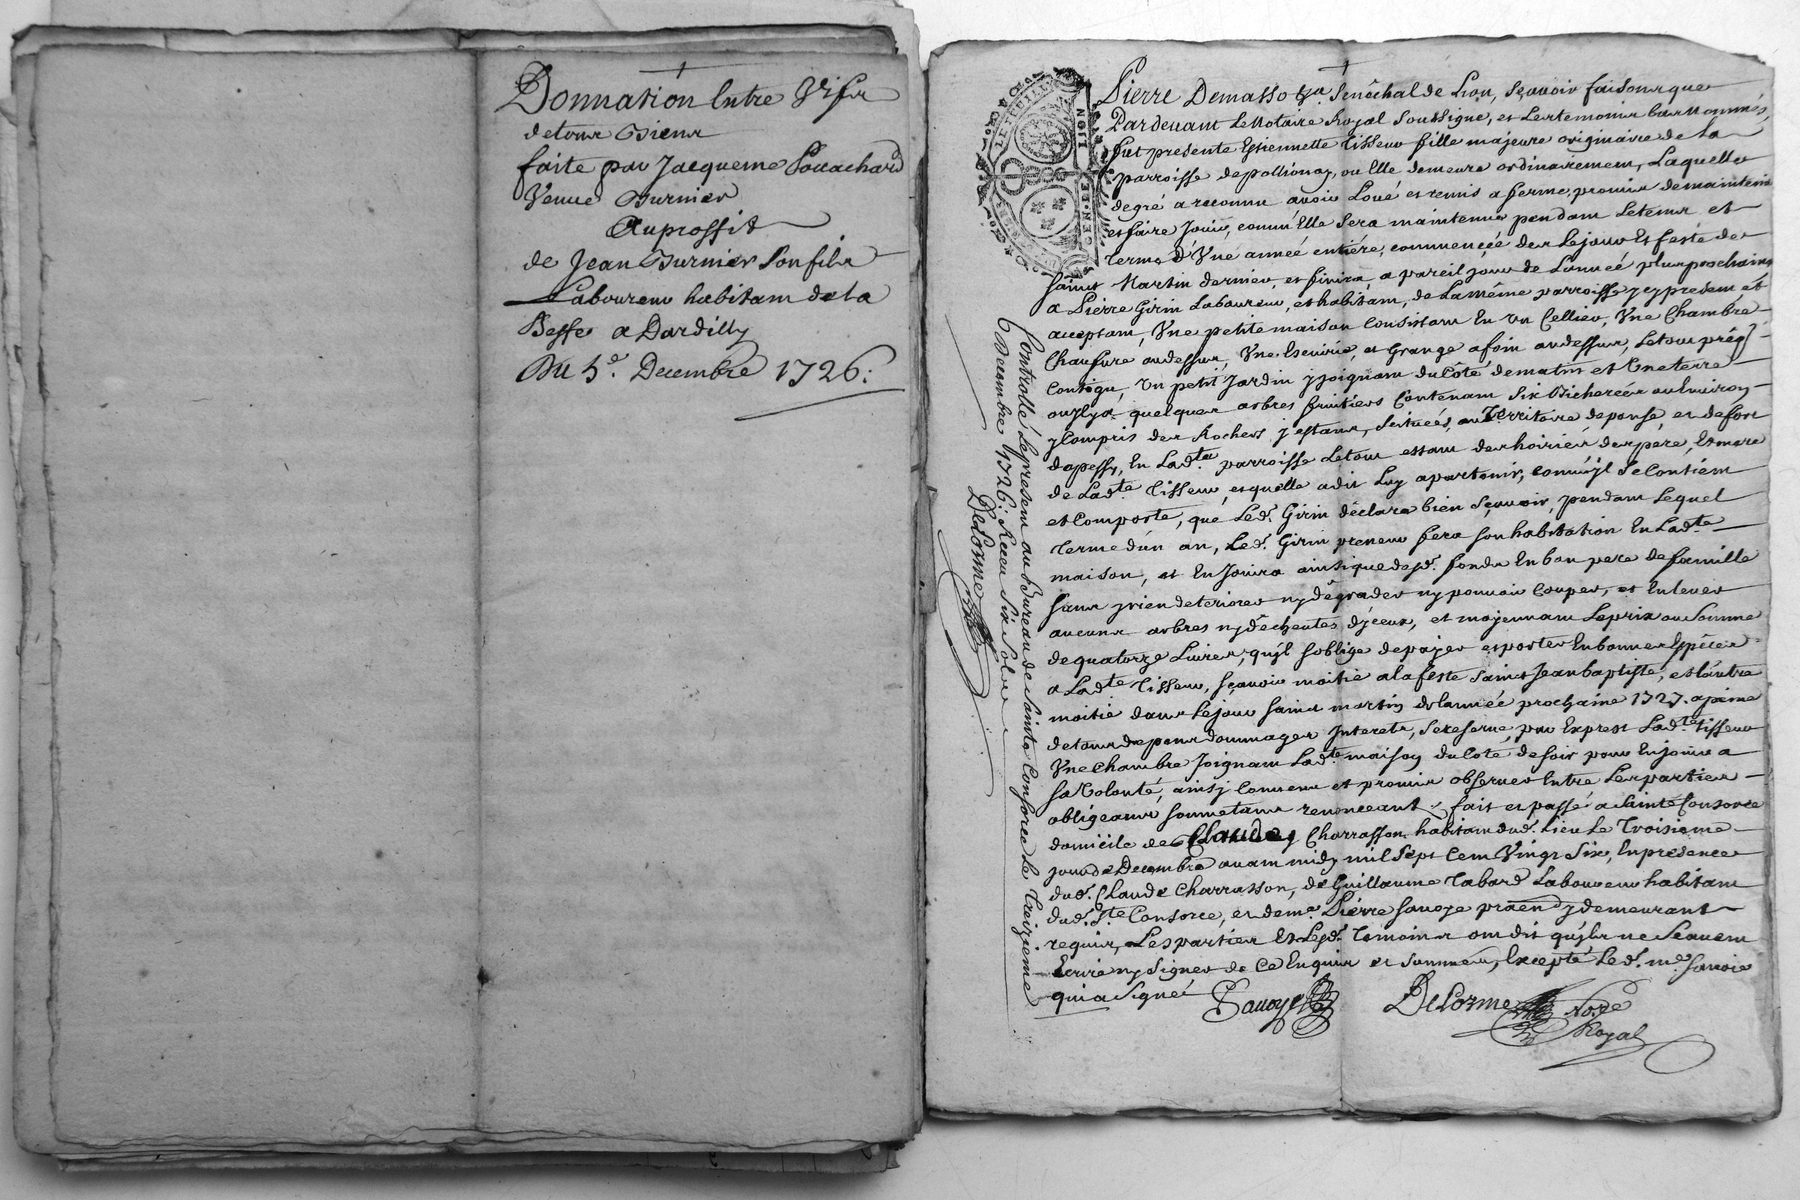 Donnation Entre Vifs
de tous Biens
faite par Jacqueme Pouachard
Veuve Burnier
Au proffit
de Jean Burnier Son fils
Laboureur habitant de la
Beffe a Dardilly
Du 5e. Decembre 1726.
Pierre Demasso Sénéchal de Lion, Sçavoir faisons que
Pardevant Le Notaire Royal Soussigné, et Les temoins bas Nommés,
fut presente Estiennette Tisseur fille majeure originaire de La
parroisse de pollionay, ou Elle demeure ordinairement, Laquelle
de gré a reconnu avoir Loué et remis a ferme, promis de maintenir
et faire Jouir, comm'Elle Sera maintenue pendant Le tems et
terme d'Vne année entiére, commencée dès Le jour et feste de
saint Martin dernier, et finira, a pareil jour de L'année plus prochaine
a Pierre Girin Laboureur, et habitant, de La même parroisse y present et
acceptant, Vne petite maison Consistant En Vn Cellier, Vne Chambre
Chaufure audessus, Vne Escurie, et Grange a foin audessus, Le tout
Contigu, Vn petit Jardin y joignant du Côté de matin et Vne terre
ou Il y a quelques arbres fruitiers Contenant Six Bicherées ou Environ
y Compris des Rochers y estant, Scitués, au Territoire de ponse, et de fort
de pessy, En Ladte. parroisse Le tout estant des hoiries des pere, Et mere
de Ladte Tisseur, et qu'elle a dit Luy apartenir, comm'jl Se Contient
et Comporte, que Led. Girin déclare bien Sçavoir, pendant Lequel
terme d'un an, Led. Girin preneur fera son habitation En Ladte
maison, et En Jouira ainsi que desd. fonds En bon pere de famille
sans y rien deteriorer ny dégrader ny pouvoir Couper, et Enlever
aucuns arbres ny dècheutes d'jceux, et moyennant Le prix ou Somme
de quatorze Livres, qu'jl s'oblige de payer et porter En bonnes Espéces
a Ladte Tisseur, sçavoir moitié a la feste Saint Jean baptiste, et L'autre
moitié dans Le jour saint martin de L'année prochaine 1727. a peine
de tous depens dommages Interets, Se reserve par Exprest Ladte. tisseur
Vne Chambre Joignant Ladte maison du Coté de soir pour En joüir a
sa Volonté, ainsy Convenu et promis observer Entre Les parties
obligeant soumetant renonceant. fait et passé a Sainte Consorce
domicile de Claude Charrasson habitant dud. Lieu Le Troisieme
jour de Decembre avant midy mil Sept Cent Vingt Six, En presence
dud. Claude Charrasson, de Guillaume Tabard Laboureur habitant
dud. Ste Consorce, et de me. Pierre Savoye y demeurant
requis, Les parties Et Lesd. Temoins ont dit qu'jls ne Scavent
Ecrire ny Signer de ce Enquis et Sommés, Excepté Led. me. Savoie
qui a Signé
Savoye
DeLorme Nore
Royal
Controllé Le present au Bureau de Sainte Consorce Le Treizieme
Decembre 1726. Receu Six Sols
DeLorme
GEN. DE LION